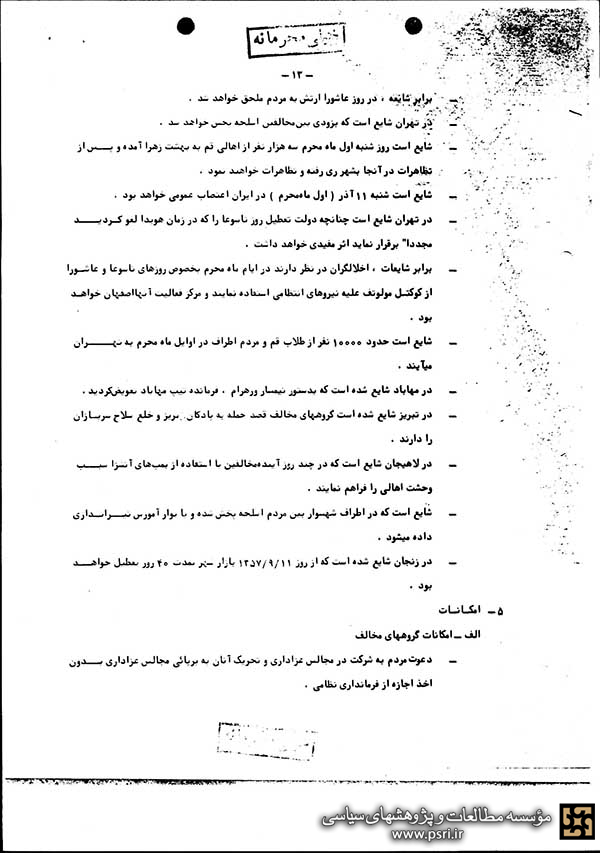 خیلی محرمانه
- ۱۳ -
— برابر شایعه ، در روز عاشورا ارتش به مردم ملحق خواهد شد .
— در تهران شایع است که بزودی بین مخالفین اسلحه پخش خواهد شد .
— شایع است روز شنبه اول ماه محرم سه هزار نفر از اهالی قم به بهشت زهرا آمده و پس از
تظاهرات در آنجا بشهر ری رفته و تظاهرات خواهند نمود .
— شایع است شنبه ۱۱ آذر ( اول ماه محرم ) در ایران اعتصاب عمومی خواهد بود .
— در تهران شایع است چنانچه دولت تعطیل روز تاسوعا را که در زمان هویدا لغو گردید
مجددا" برقرار نماید اثر مفیدی خواهد داشت .
— برابر شایعات ، اخلالگران در نظر دارند در ایام ماه محرم بخصوص روزهای تاسوعا و عاشورا
از کوکتل مولوتف علیه نیروهای انتظامی استفاده نمایند و مرکز فعالیت آنها اصفهان خواهد
بود .
— شایع است حدود ۱۰۰۰۰ نفر از طلاب قم و مردم اطراف در اوایل ماه محرم به تهران
میآیند .
— در مهاباد شایع شده است که بدستور تیمسار ورهرام ، فرمانده تیپ مهاباد تعویض گردید .
— در تبریز شایع شده است گروههای مخالف قصد حمله به پادگان تبریز و خلع سلاح سربازان
را دارند .
— در لاهیجان شایع است که در چند روز آینده مخالفین با استفاده از بمب‌های آتش‌زا سبب
وحشت اهالی را فراهم نمایند .
— شایع است که در اطراف شهسوار بین مردم اسلحه پخش شده و با نوار آموزش تیراندازی
داده میشود .
— در زنجان شایع شده است که از روز ۱۳۵۷/۹/۱۱ بازار شهر بمدت ۴۰ روز تعطیل خواهد
بود .
۵ — امکانات
الف — امکانات گروههای مخالف
— دعوت مردم به شرکت در مجالس عزاداری و تحریک آنان به برپائی مجالس عزاداری بدون
اخذ اجازه از فرمانداری نظامی .
مؤسسه مطالعات و پژوهشهای سیاسی
www.psri.ir